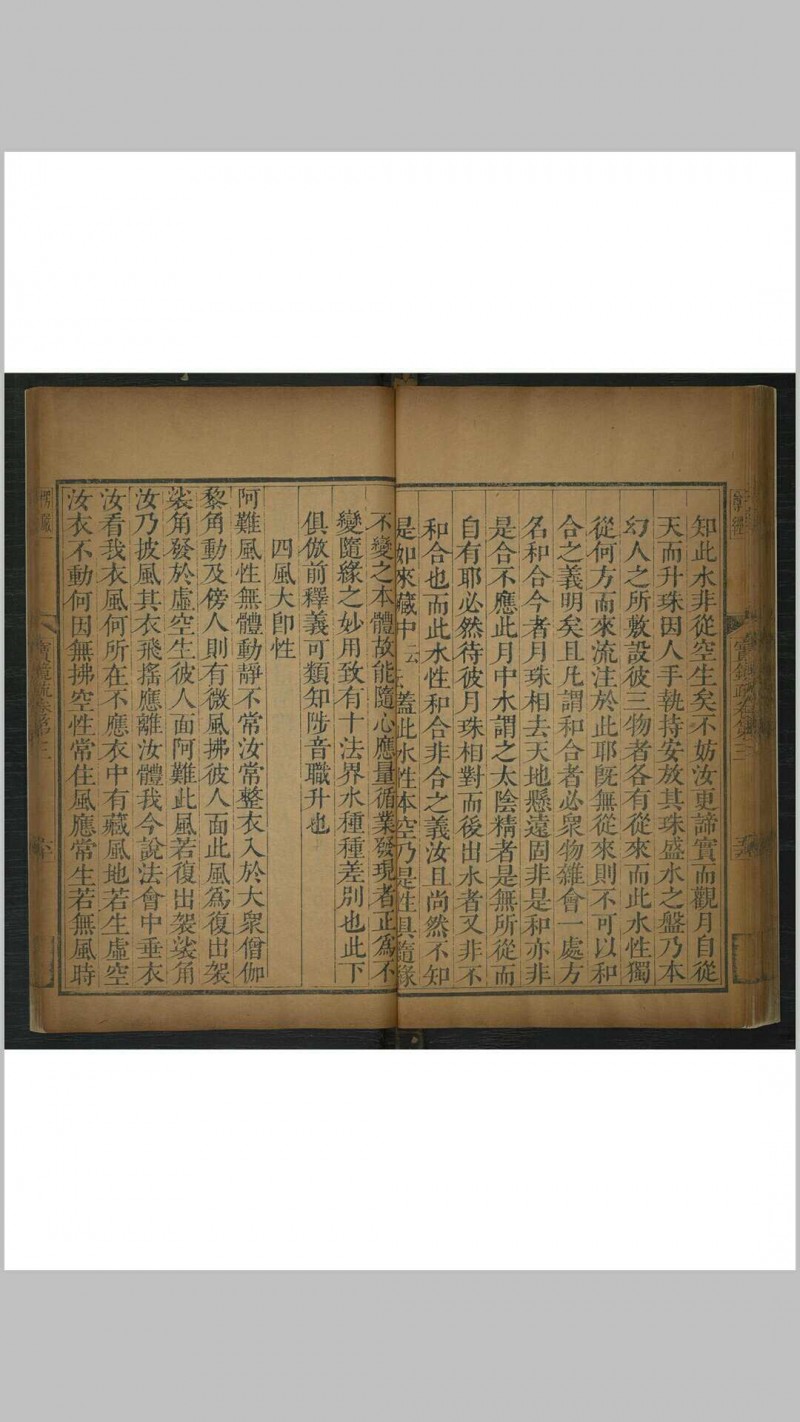 知此水非從空生矣不妨汝更諦實而觀月自從
天而升珠因人手執持安放其珠盛水之盤乃本
幻人之所敷設彼三物者各有從來而此水性獨
從何方而來流注於此耶既無從來則不可以和
合之義明矣且凡謂和合者必衆物雜會一處方
名和合今者月珠相去天地懸遠固非是和亦非
是合不應此月中水謂之太陰精者是無所從而
自有耶必然待彼月珠相對而後出水者又非不
和合也而此水性和合非合之義汝且尚然不知
是如來藏中云云蓋此水性本空乃是性具隨緣
不變之本體故能隨心應量循業發現者正為不
變隨緣之妙用致有十法界水種種差別也此下
俱倣前釋義可類知陟音職升也
四風大即性
阿難風性無體動靜不常汝常整衣入於大衆僧伽
黎角動及傍人則有微風拂彼人面此風為復出袈
裟角發於虛空生彼人面阿難此風若復出袈裟角
汝乃披風其衣飛搖應離汝體我今說法會中垂衣
汝看我衣風何所在不應衣中有藏風地若生虛空
汝衣不動何因無拂空性常住風應常生若無風時
楞嚴